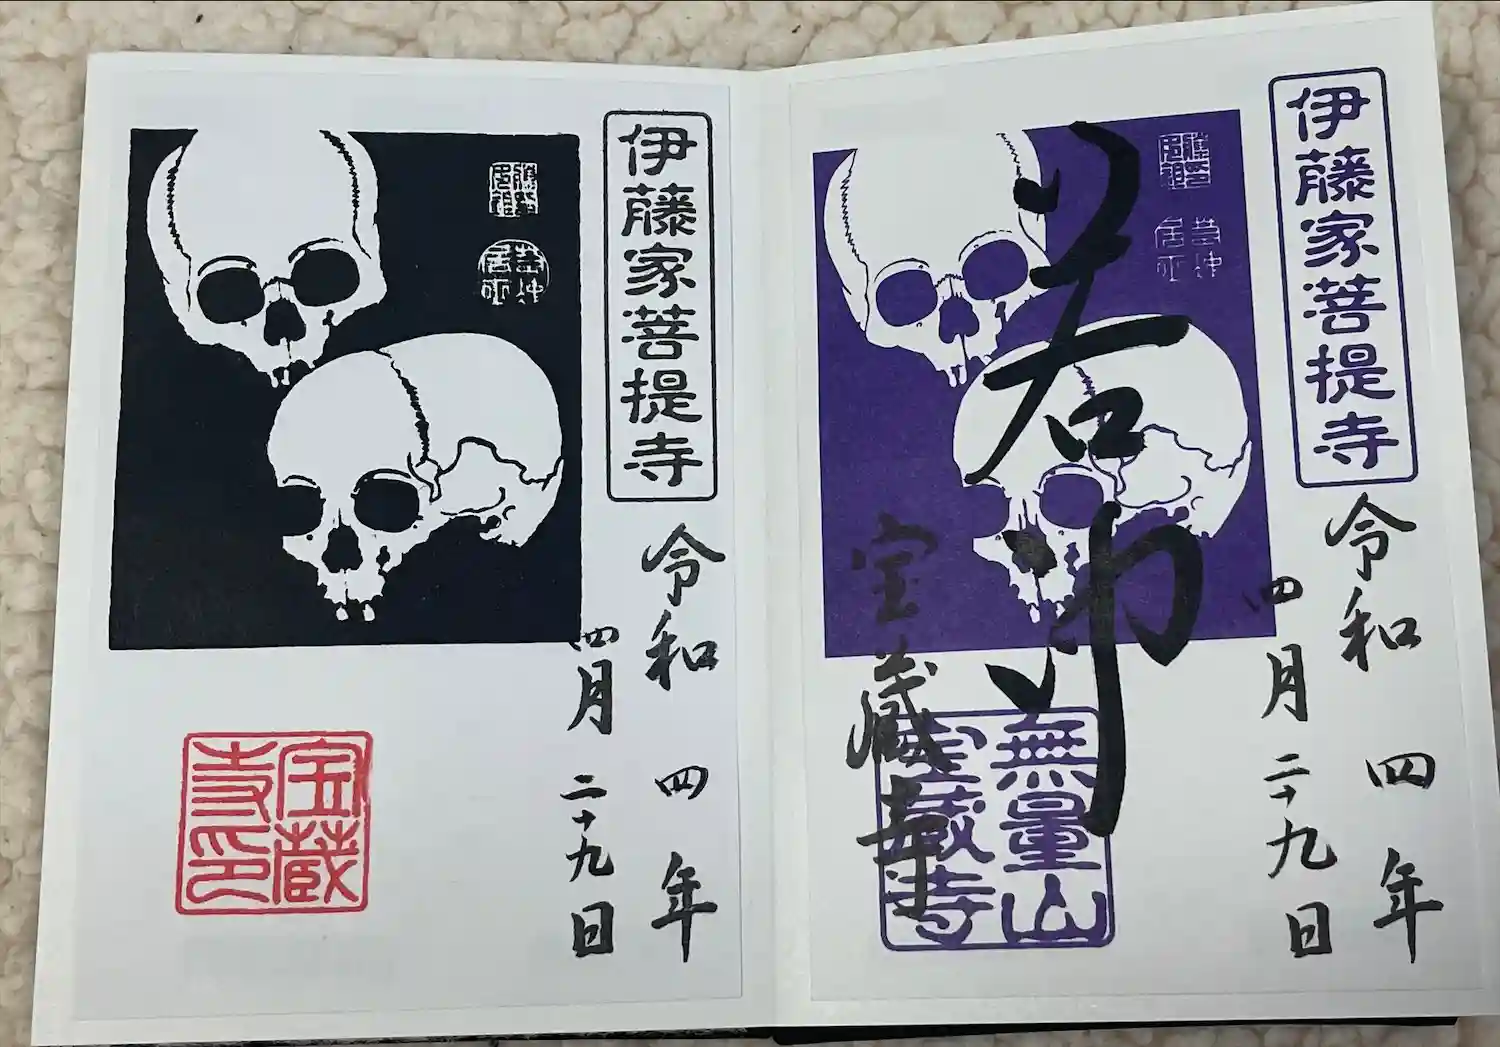 伊藤家菩提寺
令和四年
四月二十九日
若冲居士
若冲
宝蔵寺
無量山
宝蔵寺
伊藤家菩提寺
令和四年
四月二十九日
若冲居士
宝蔵
寺印